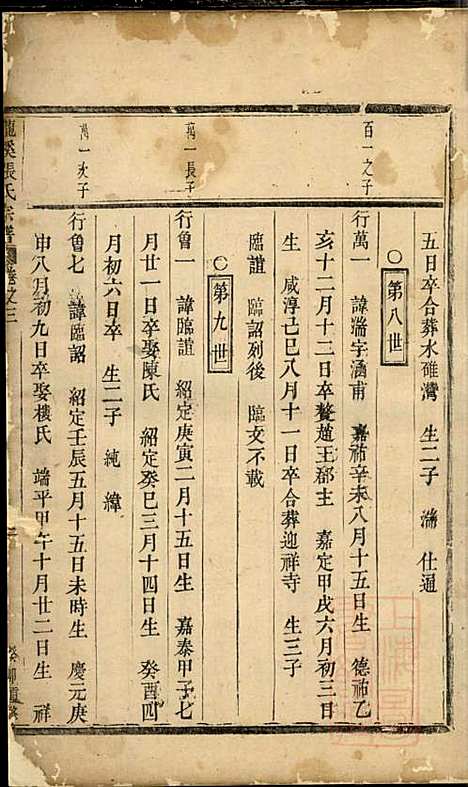 五日卒合葬水碓灣　生二子　滿　仕通
○第八世
百一之子
行萬一　諱滿字涵甫　嘉祐辛未八月十五日生　德祐乙
亥十二月十二日卒娶趙王郡主　嘉定甲戌六月初三日
生　咸淳古巳八月十一日卒合葬迎祥寺　生三子
臨誼　臨詔列後　臨文不載
○第九世
萬一長子
行魯一　諱臨誼　紹定庚寅二月十五日生　嘉泰甲子七
月廿一日卒娶陳氏　紹定癸巳三月十四日生　癸酉四
月初六日卒　生二子　純　緯
萬一次子
行魯七　諱臨詔　紹定壬辰五月十五日未時生　慶元庚
申八月初九日卒娶樓氏　端平甲午十月廿二日生　祥
龍溪張氏宗譜　卷之三